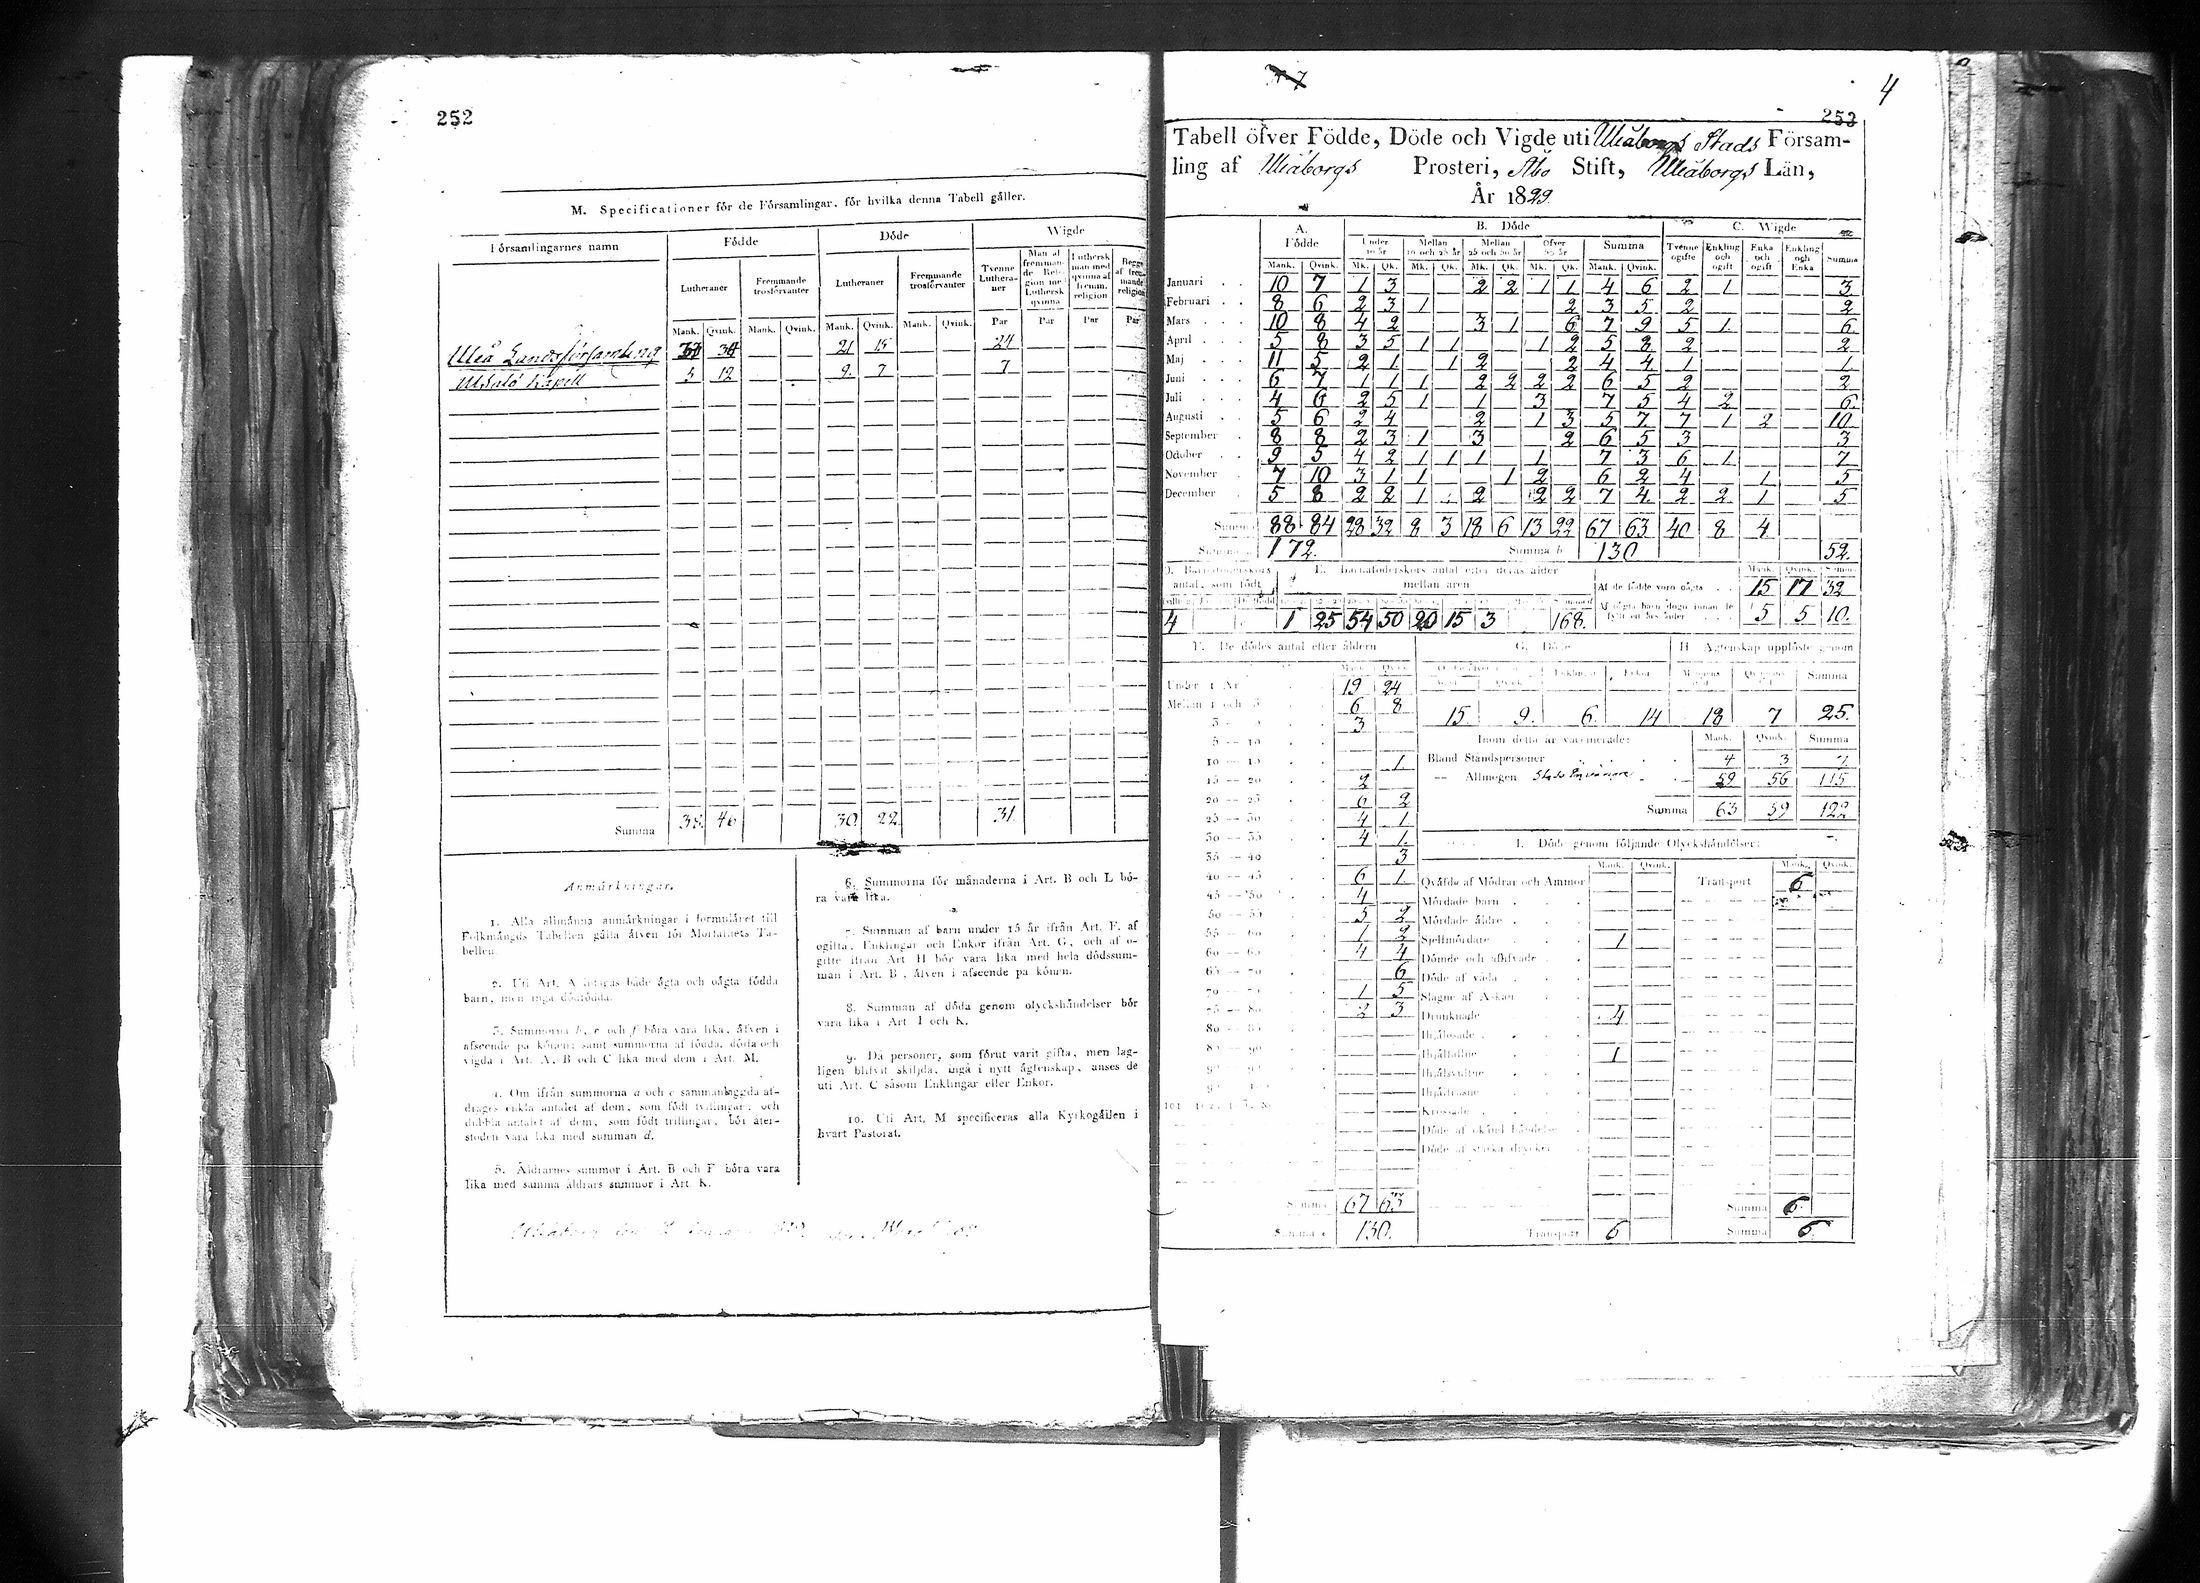 252
M. Specificationer för de Församlingar, för hvilka denna Tabell gäller.
Församlingarnes namn Födde Döde Wigde
Lutheraner Fremmande trosförvanter Lutheraner Fremmande trosförvanter Tvenne Lutheraner Man af fremmande Religion med Luthersk qvinna Luthersk man med qvinna af fremm. religion Begge af fremmande religion
Mank. Qvink. Mank. Qvink. Mank. Qvink. Mank. Qvink. Par Par Par Par
Uleå Landsförsamling 34 21 15 24
Kapell 5 12 9 7 7
Summa 38. 46 30. 22. 31.
Anmärkningar.
1. Alla allmänna anmärkningar i formuläret till
Folkmängds Tabellen gälla äfven för Mortalitets Ta-
bellen.
2. Uti Art. A intagas både ägta och oägta födda
barn, men inga dödfödda.
3. Summorna b, e och f böra vara lika, äfven i
afseende på könen; samt summorna af födda, döda och
vigda i Art. A, B och C lika med dem i Art. M.
4. Om ifrån summorna a och c sammanlaggda af-
drages enkla antalet af dem, som födt tvillingar, och
dubbla antalet af dem, som födt trillingar, bör åter-
stoden vara lika med summan d.
5. Åldrarnes summor i Art. B och F böra vara
lika med samma åldrars summor i Art. K.
6. Summorna för månaderna i Art. B och L bö-
ra vara lika.
7. Summan af barn under 15 år ifrån Art. F. af
ogifta, Enklingar och Enkor ifrån Art. G, och af o-
gifte ifrån Art H bör vara lika med hela dödssum-
man i Art. B, äfven i afseende på könen.
8. Summan af döda genom olyckshändelser bör
vara lika i Art. I och K.
9. Då personer, som förut varit gifta, men lag-
ligen blifvit skiljda, ingå i nytt ägtenskap, anses de
uti Art. C såsom Enklingar eller Enkor.
10. Uti Art. M specificeras alla Kyrkogällen i
hvart Pastorat.
4
253
Tabell öfver Födde, Döde och Vigde uti Uleåborgs Stads Församling
af Uleåborgs Prosteri, Åbo Stift, Uleåborgs Län,
År 1829.
A. Födde B. Döde C. Wigde
Under 10 år Mellan 10 och 25 år Mellan 25 och 50 år Öfver 50 år Summa Tvenne ogifte Enkling och ogift Enka och ogift Enkling och Enka Summa
Mank. Qvink. Mk. Qk. Mk. Qk. Mk. Qk. Mk. Qk. Mank. Qvink.
Januari 10 7 1 3 2 2 1 1 4 6 2 1 3
Februari 8 6 2 3 1 2 3 5 2 2
Mars 10 8 4 2 3 1 6 7 9 5 1 6
April 5 8 3 5 1 1 1 2 5 8 2 2
Maj 11 5 2 1 1 2 2 4 4 1 1
Juni 6 7 1 1 1 2 2 2 2 6 5 2 2
Juli 4 6 2 5 1 1 3 7 5 4 2 6
Augusti 5 6 2 4 2 1 3 5 7 7 1 2 10
September 8 8 2 3 1 3 2 6 5 3 3
October 9 5 4 2 1 1 1 1 7 3 6 1 7
November 7 10 3 1 1 1 2 6 2 4 1 5
December 5 8 2 2 1 2 2 2 7 4 2 2 1 5
Summa 88 84 28 32 8 3 18 6 13 22 67 63 40 8 4
Summa a 172. Summa b 130 52.
D. Barnaföderskors antal, som födt E. Barnaföderskors antal efter deras ålder mellan åren Mank. Qvink. Summa
Af de födde voro oägta 15 17 32
Af oägta barn dogo innan de fyllt ett års ålder 5 5 10.
4 1 25 54 50 20 15 3 168.
F. De dödes antal efter åldern G. Döde H. Ägtenskap upplöste genom
Mank. Qvink. Enklingar Enkor Mannens död Qvinnans död Summa
Under 1 År 19 24
Mellan 1 och 3 6 8
3 — 5 3
5 — 10
10 — 15 1
15 — 20 2
20 — 25 6 2
25 — 30 4 1
30 — 35 4 1
35 — 40 3
40 — 45 6 1
45 — 50 4
50 — 55 5 2
55 — 60 1 2
60 — 65 4 4
65 — 70 6
70 — 75 1 5
75 — 80 2 3
80 — 85
Summa 67 63
Summa e 130.
15. 9. 6. 14 18 7 25.
Inom detta år vaccinerade: Mank. Qvink. Summa
Bland Ståndspersoner 4 3 7
— Allmogen 59 56 115
Summa 63 59 122
I. Döde genom följande Olyckshändelser:
Mank. Qvink. Mank. Qvink.
Qväfde af Mödrar och Ammor Transport 6
Mördade barn
Mördade äldre
Sjelfmördare 1
Dömde och aflifvade
Döde af våda
Slagne af Åskan
Drunknade 4
Ihjälfallne 1
Ihjälsvultne
Ihjälfrosne
Krossade
Döde af okänd händelse
Döde af starka drycker
Summa 6
Transport 6 Summa 6